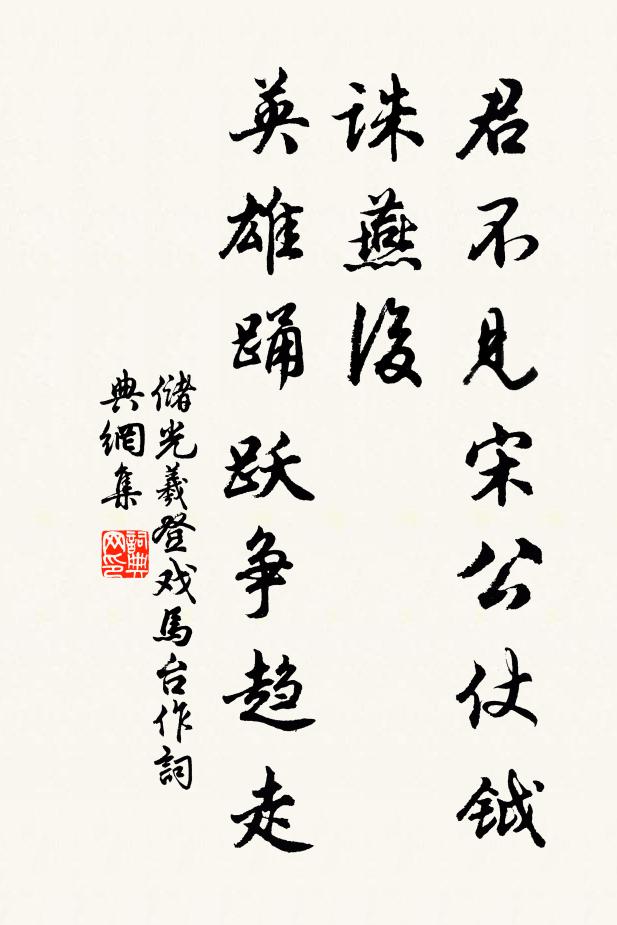 君不見宋公仗鉞
誅燕後
英雄踊跃争趋走
儲光羲登戏馬台作詞
典網集
詞典网印